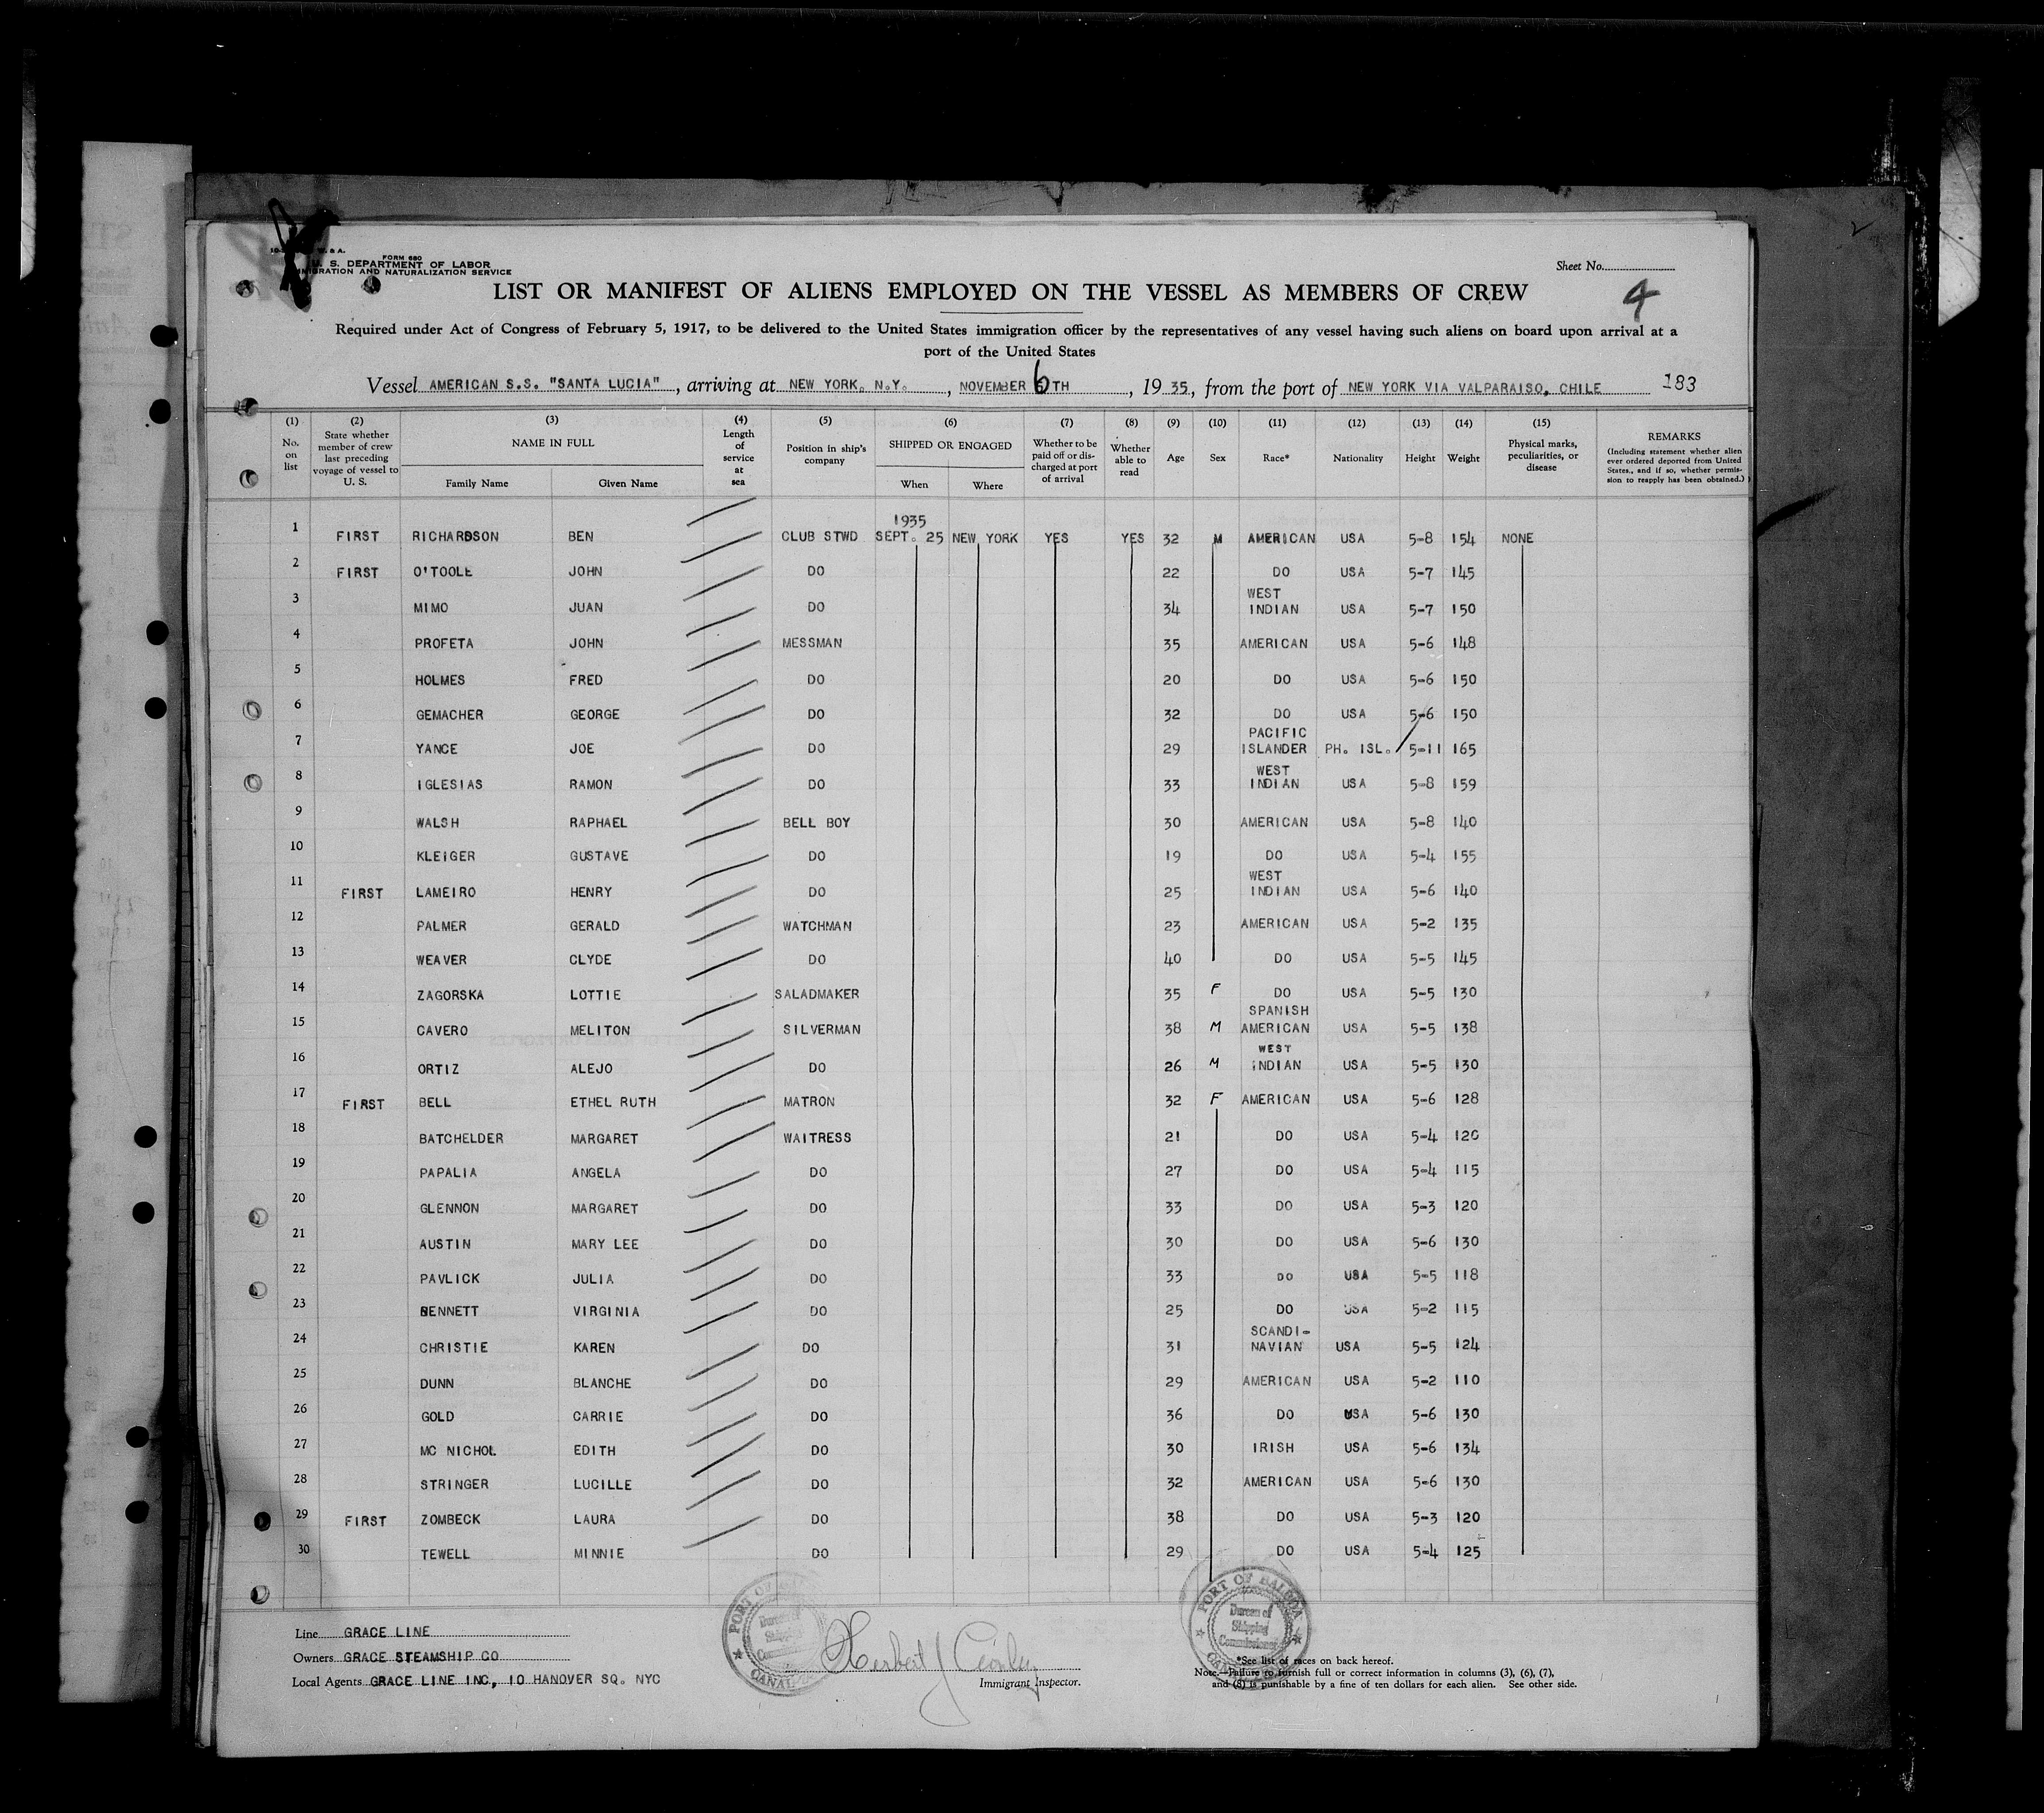 FORM 680
U. S. DEPARTMENT OF LABOR
IMMIGRATION AND NATURALIZATION SERVICE
Sheet No.
4
LIST OR MANIFEST OF ALIENS EMPLOYED ON THE VESSEL AS MEMBERS OF CREW
Required under Act of Congress of February 5, 1917, to be delivered to the United States immigration officer by the representatives of any vessel having such aliens on board upon arrival at a
port of the United States
Vessel AMERICAN S.S. "SANTA LUCIA", arriving at NEW YORK. N.Y., NOVEMBER 6TH, 1935, from the port of NEW YORK VIA VALPARAISO, CHILE 183
(1) No. on list (2) State whether member of crew last preceding voyage of vessel to U. S. (3) NAME IN FULL Family Name Given Name (4) Length of service at sea (5) Position in ship's company (6) SHIPPED OR ENGAGED When Where (7) Whether to be paid off or discharged at port of arrival (8) Whether able to read (9) Age (10) Sex (11) Race* (12) Nationality (13) Height (14) Weight (15) Physical marks, peculiarities, or disease REMARKS (Including statement whether alien ever ordered deported from United States, and if so, whether permission to reapply has been obtained.)
1 FIRST RICHARDSON BEN CLUB STWD 1935 SEPT. 25 NEW YORK YES YES 32 M AMERICAN USA 5-8 154 NONE
2 FIRST O'TOOLE JOHN DO 22 DO USA 5-7 145
3 MIMO JUAN DO 34 WEST INDIAN USA 5-7 150
4 PROFETA JOHN MESSMAN 35 AMERICAN USA 5-6 148
5 HOLMES FRED DO 20 DO USA 5-6 150
6 GEMACHER GEORGE DO 32 DO USA 5-6 150
7 YANCE JOE DO 29 PACIFIC ISLANDER PH. ISL. 5-11 165
8 IGLESIAS RAMON DO 33 WEST INDIAN USA 5-8 159
9 WALSH RAPHAEL BELL BOY 30 AMERICAN USA 5-8 140
10 KLEIGER GUSTAVE DO 19 DO USA 5-4 155
11 FIRST LAMEIRO HENRY DO 25 WEST INDIAN USA 5-6 140
12 PALMER GERALD WATCHMAN 23 AMERICAN USA 5-2 135
13 WEAVER CLYDE DO 40 DO USA 5-5 145
14 ZAGORSKA LOTTIE SALADMAKER 35 F DO USA 5-5 130
15 CAVERO MELITON SILVERMAN 38 M SPANISH AMERICAN USA 5-5 138
16 ORTIZ ALEJO DO 26 M WEST INDIAN USA 5-5 130
17 FIRST BELL ETHEL RUTH MATRON 32 F AMERICAN USA 5-6 128
18 BATCHELDER MARGARET WAITRESS 21 DO USA 5-4 120
19 PAPALIA ANGELA DO 27 DO USA 5-4 115
20 GLENNON MARGARET DO 33 DO USA 5-3 120
21 AUSTIN MARY LEE DO 30 DO USA 5-6 130
22 PAVLICK JULIA DO 33 DO USA 5-5 118
23 BENNETT VIRGINIA DO 25 DO USA 5-2 115
24 CHRISTIE KAREN DO 31 SCANDI-NAVIAN USA 5-5 124
25 DUNN BLANCHE DO 29 AMERICAN USA 5-2 110
26 GOLD CARRIE DO 36 DO USA 5-6 130
27 MC NICHOL EDITH DO 30 IRISH USA 5-6 134
28 STRINGER LUCILLE DO 32 AMERICAN USA 5-6 130
29 FIRST ZOMBECK LAURA DO 38 DO USA 5-3 120
30 TEWELL MINNIE DO 29 DO USA 5-4 125
Line GRACE LINE
Owners GRACE STEAMSHIP CO
Local Agents GRACE LINE INC, 10 HANOVER SQ. NYC
PORT OF
Bureau of
Shipping
PORT OF BALBOA
Bureau of
Shipping
Commissioner
Herbert J
Immigrant Inspector.
*See list of races on back hereof.
Note.—Failure to furnish full or correct information in columns (3), (6), (7),
and (8) is punishable by a fine of ten dollars for each alien. See other side.